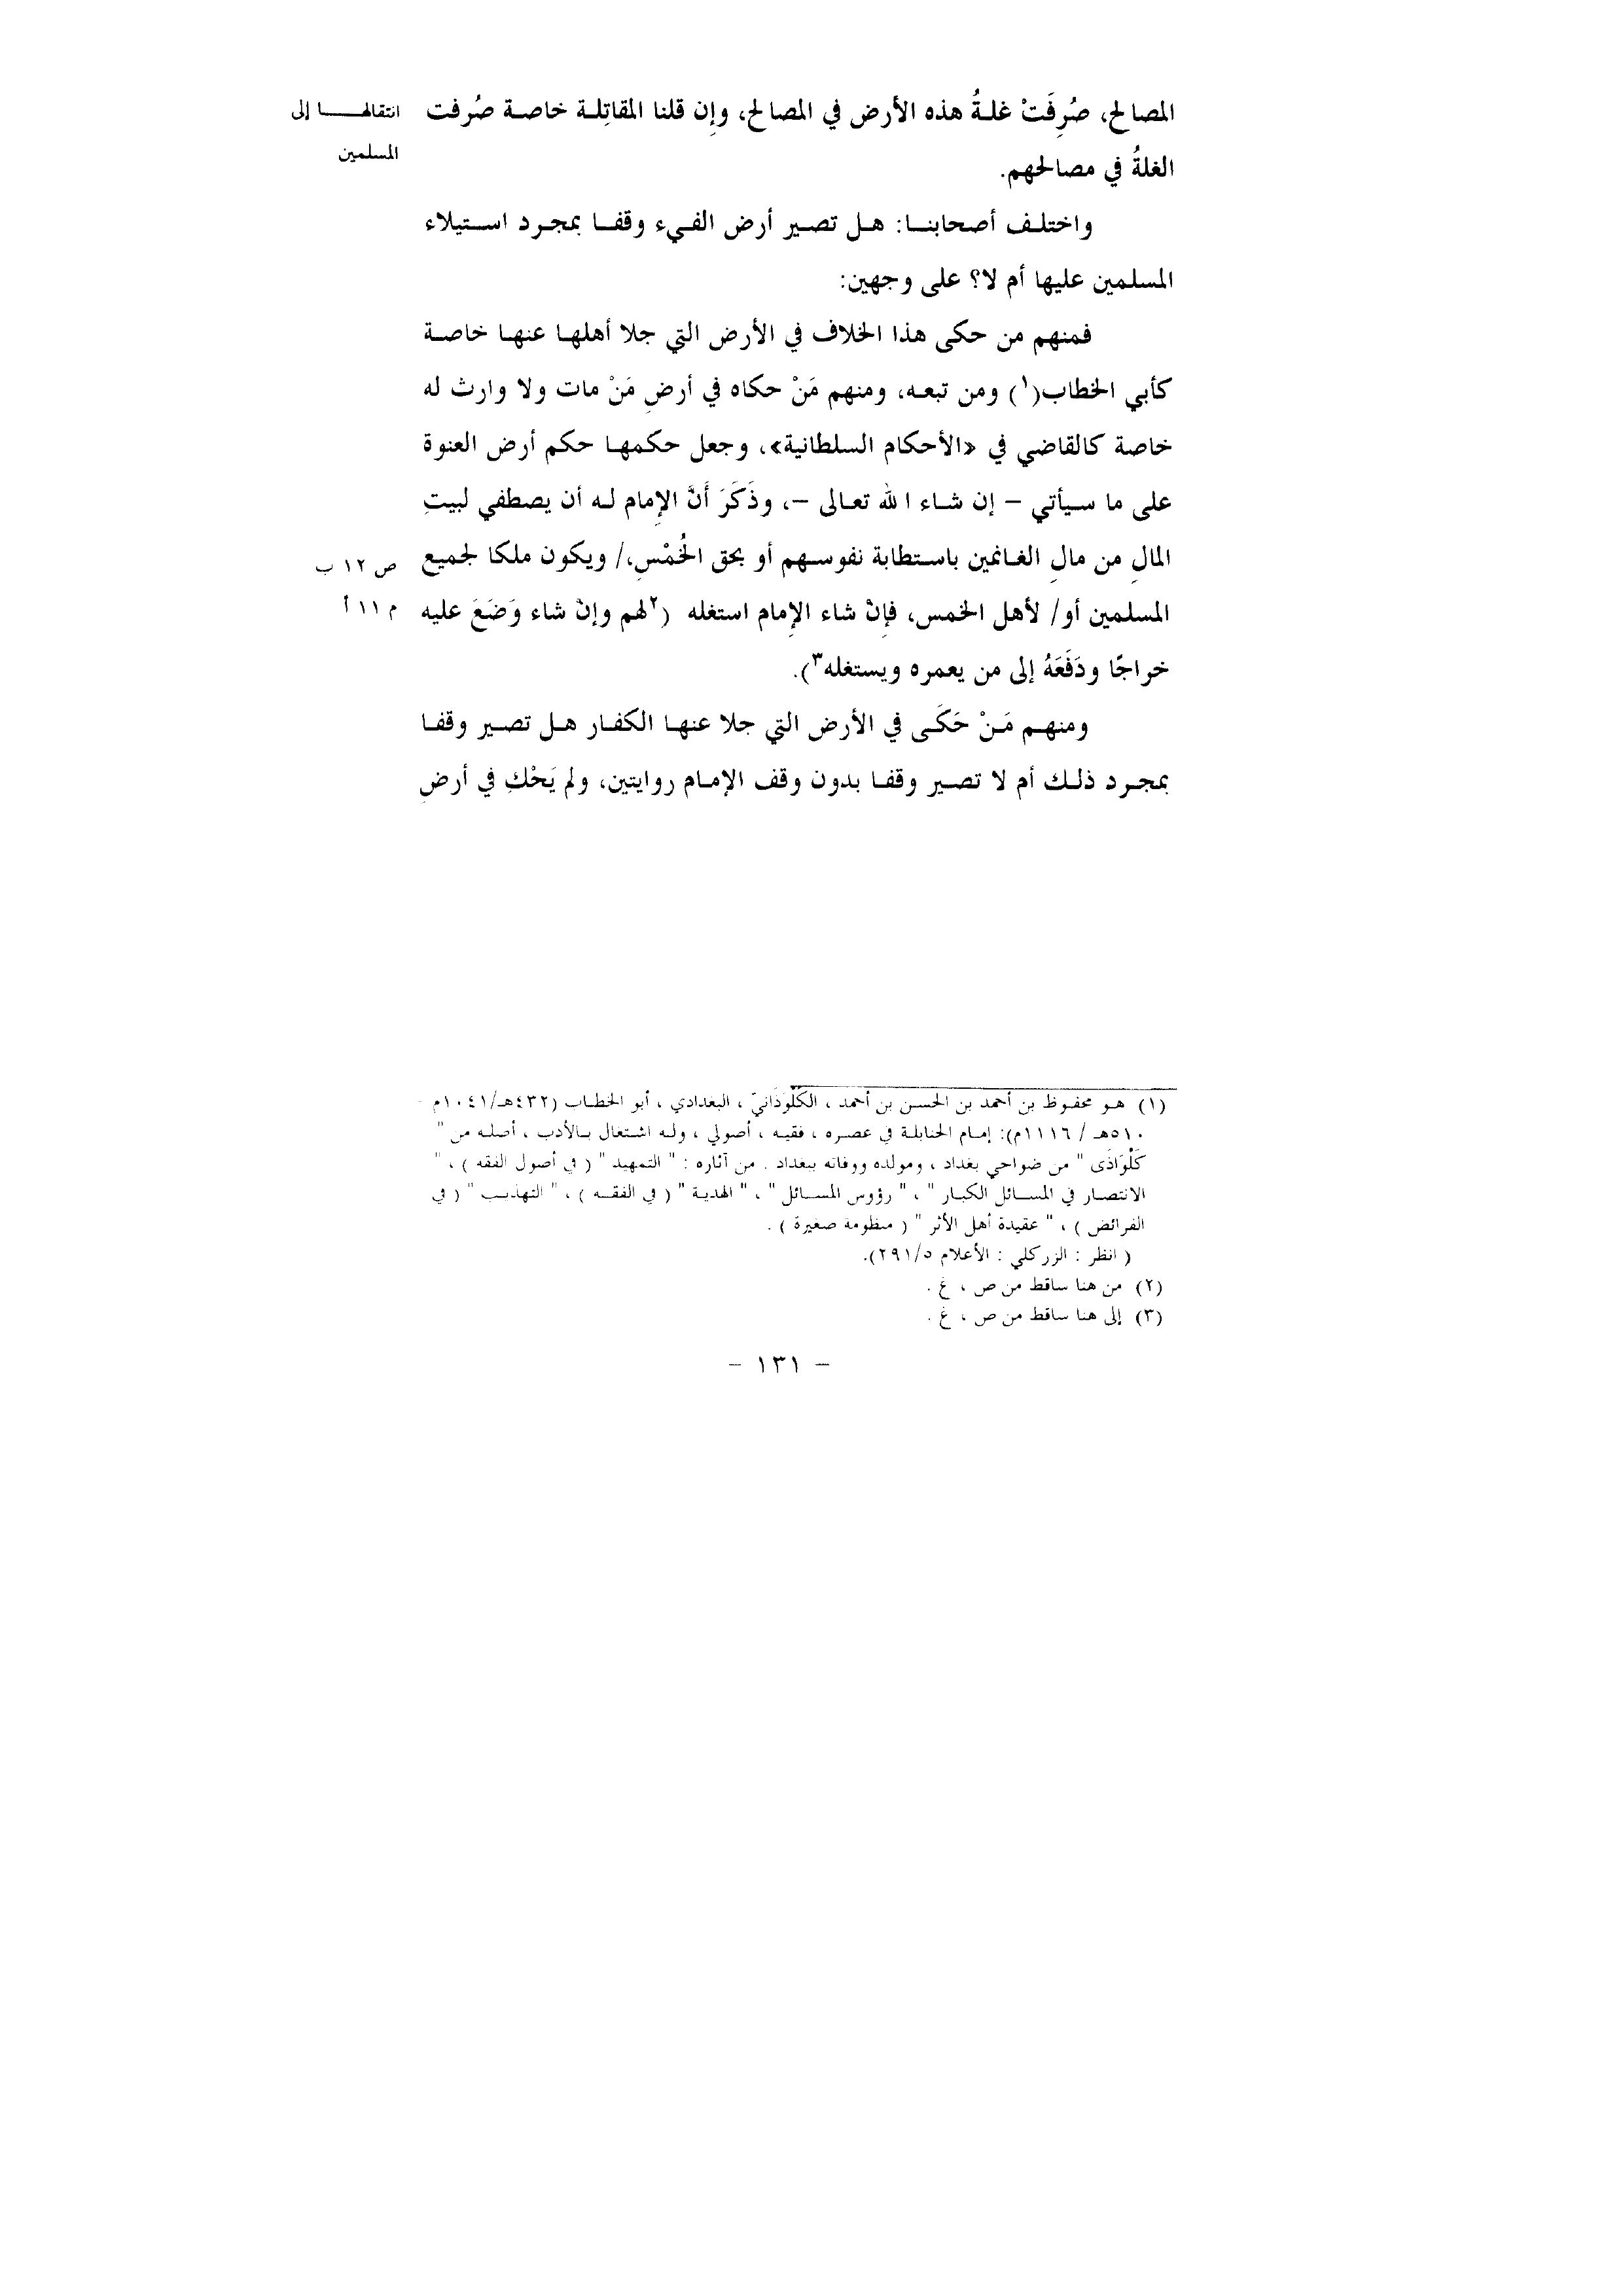 المصالح، صُرِفَتْ غلةُ هذه الأرض في المصالح، وإن قلنا المقاتِلة خاصة صُرفت
انتقالها إلى
المسلمين
الغلةُ في مصالحهم.
واختلف أصحابنا: هل تصير أرض الفيء وقفا بمجرد استيلاء
المسلمين عليها أم لا؟ على وجهين:
فمنهم من حكى هذا الخلاف في الأرض التي جلا أهلها عنها خاصة
كأبي الخطاب(١) ومن تبعه، ومنهم مَنْ حكاه في أرضِ مَنْ مات ولا وارث له
خاصة كالقاضي في «الأحكام السلطانية»، وجعل حكمها حكم أرض العنوة
على ما سيأتي – إن شاء الله تعالى –، وذَكَرَ أَنَّ الإمام له أن يصطفي لبيتِ
المالِ من مالِ الغانمين باستطابة نفوسهم أو بحق الخُمْسِ،/ ويكون ملكا لجميع
ص ١٢ ب
المسلمين أو/ لأهل الخمس، فإنْ شاء الإمام استغله (٢لهم وإنْ شاء وَضَعَ عليه
م ١١ أ
خراجًا ودَفَعَهُ إلى من يعمره ويستغله٣).
ومنهم مَنْ حَكَى في الأرض التي جلا عنها الكفار هل تصير وقفا
بمجرد ذلك أم لا تصير وقفا بدون وقف الإمام روايتين، ولم يَحْكِ في أرضِ
(١) هو محفوظ بن أحمد بن الحسن بن أحمد ، الكَلْوَذَانيّ ، البغدادي ، أبو الخطاب (٤٣٢هـ/١٠٤١م -
٥١٠هـ / ١١١٦م): إمام الحنابلة في عصره ، فقيه ، أصولي ، وله اشتغال بالأدب ، أصله من "
كَلْوَاذَى " من ضواحي بغداد ، ومولده ووفاته ببغداد . من آثاره : " التمهيد " ( في أصول الفقه ) ، "
الانتصار في المسائل الكبار " ، " رؤوس المسائل " ، " الهدية " ( في الفقه ) ، " التهذيب " ( في
الفرائض ) ، " عقيدة أهل الأثر " ( منظومة صغيرة ) .
( انظر : الزركلي : الأعلام ٢٩١/٥).
(٢) من هنا ساقط من ص ، غ .
(٣) إلى هنا ساقط من ص ، غ .
– ١٣١ –